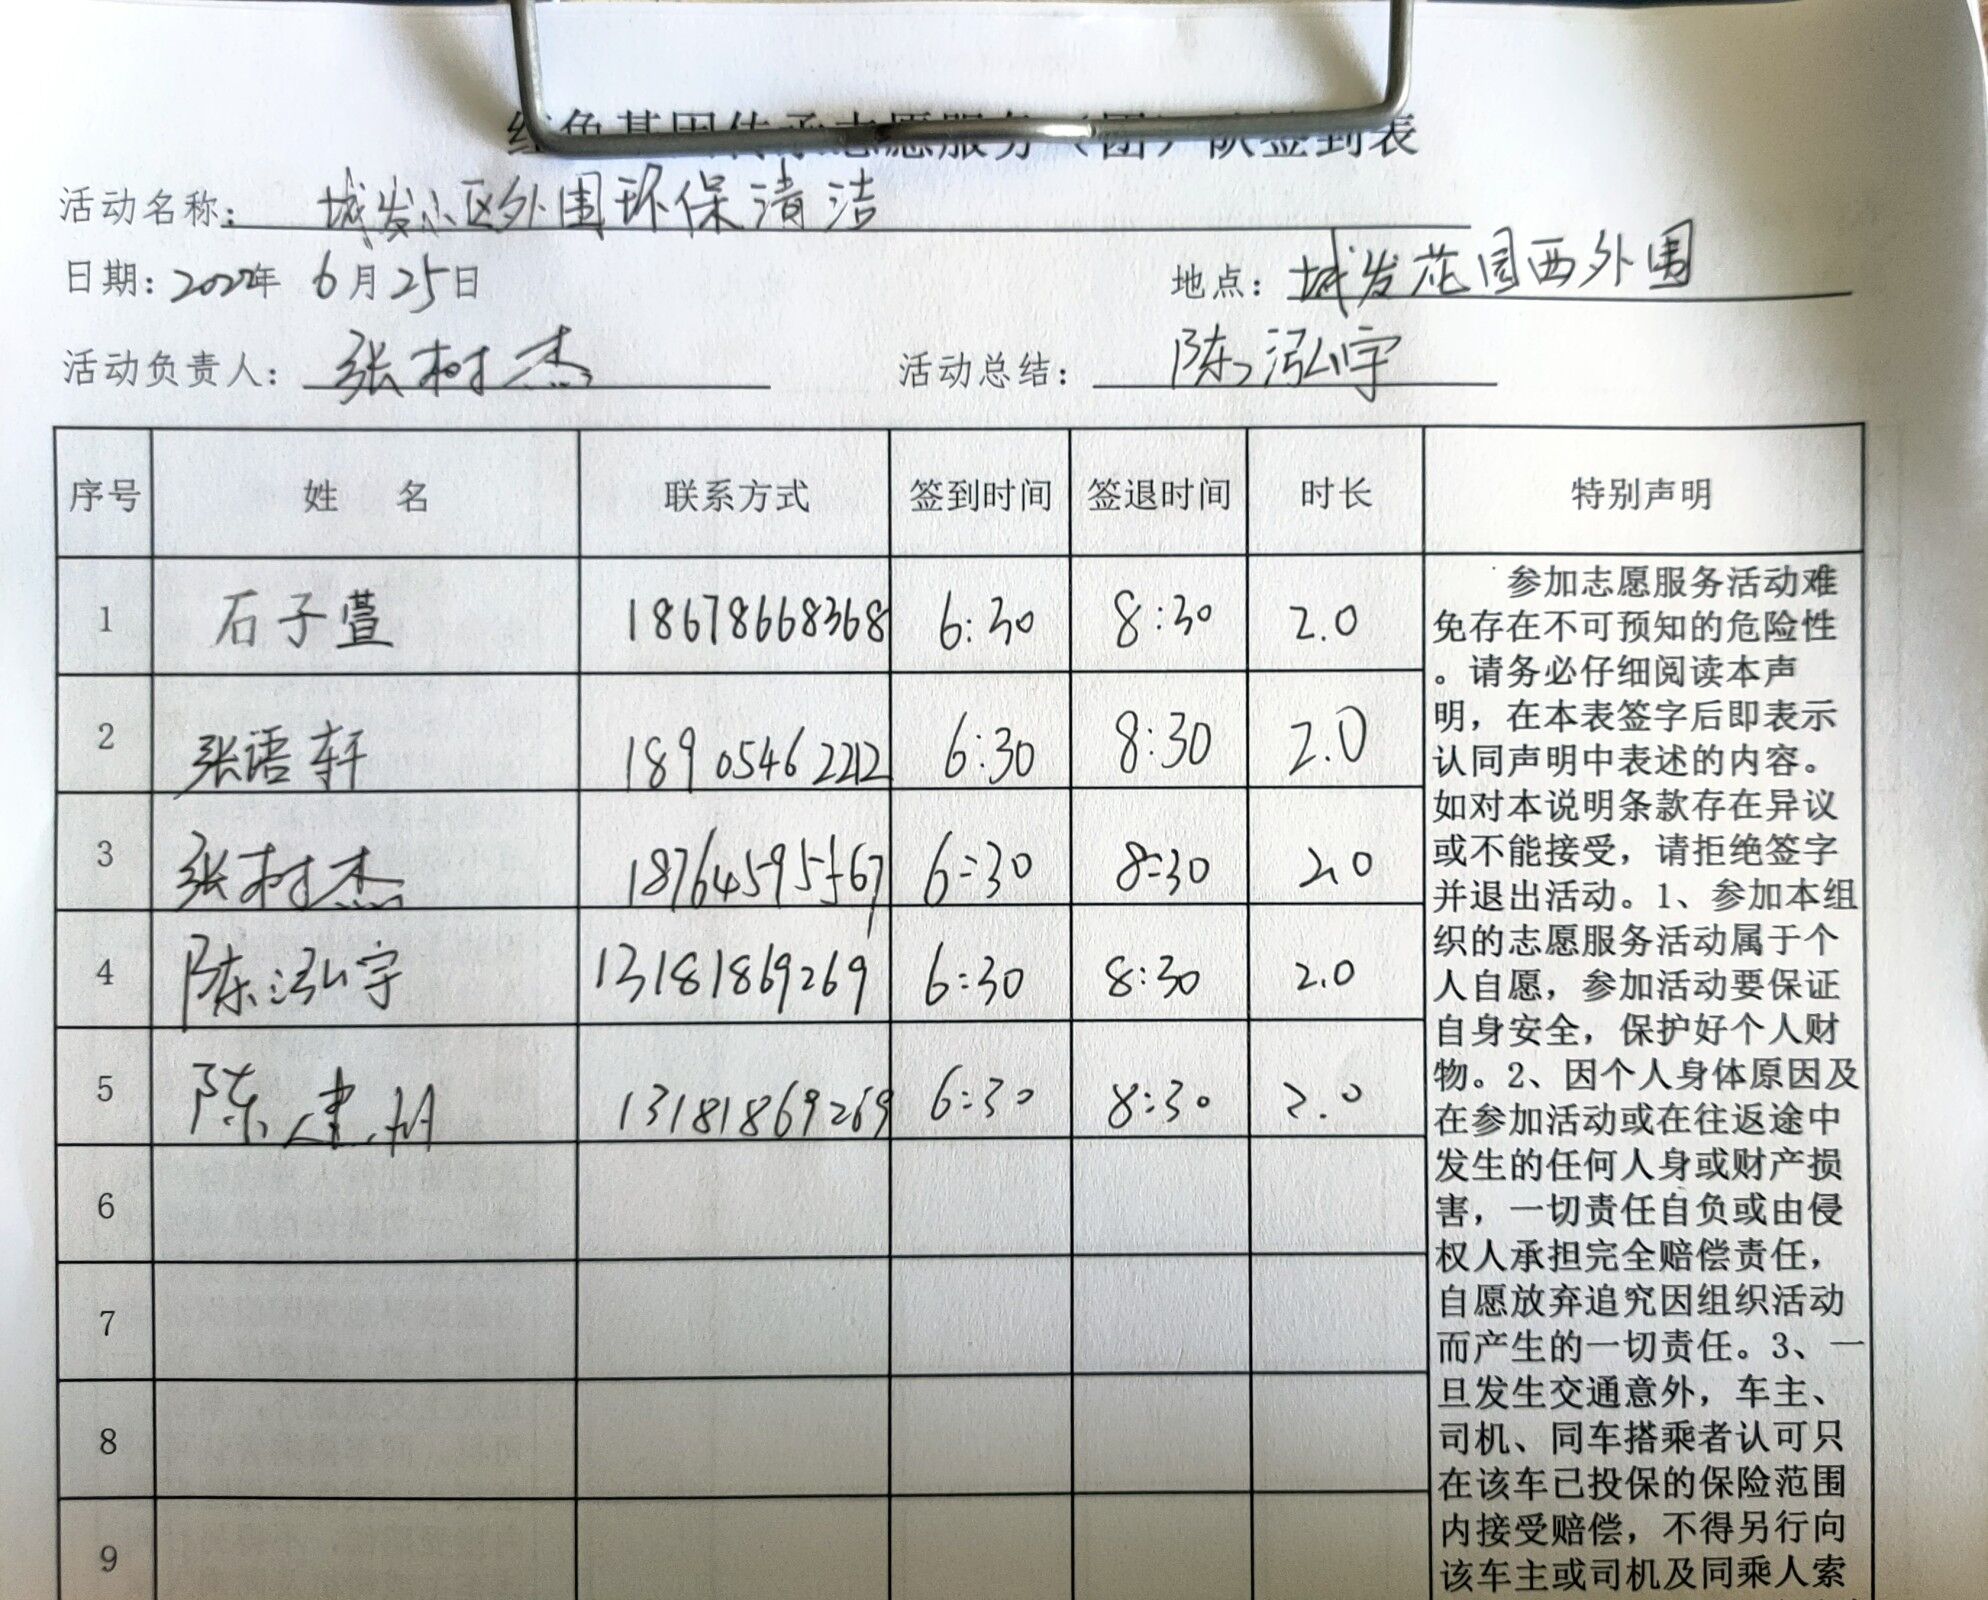 红色基因传承志愿服务（团）队签到表
活动名称：城发小区外围环保清洁
日期：2022年 6月25日 地点：城发花园西外围
活动负责人：张树杰 活动总结：陈泓宇
序号 姓 名 联系方式 签到时间 签退时间 时长 特别声明
1 石子萱 18678668368 6:30 8:30 2.0
2 张语轩 18905462212 6:30 8:30 2.0
3 张树杰 18764595567 6:30 8:30 2.0
4 陈泓宇 13181869269 6:30 8:30 2.0
5 陈建 13181869269 6:30 8:30 2.0
6
7
8
9
参加志愿服务活动难
免存在不可预知的危险性
。请务必仔细阅读本声
明，在本表签字后即表示
认同声明中表述的内容。
如对本说明条款存在异议
或不能接受，请拒绝签字
并退出活动。1、参加本组
织的志愿服务活动属于个
人自愿，参加活动要保证
自身安全，保护好个人财
物。2、因个人身体原因及
在参加活动或在往返途中
发生的任何人身或财产损
害，一切责任自负或由侵
权人承担完全赔偿责任，
自愿放弃追究因组织活动
而产生的一切责任。3、一
旦发生交通意外，车主、
司机、同车搭乘者认可只
在该车已投保的保险范围
内接受赔偿，不得另行向
该车主或司机及同乘人索